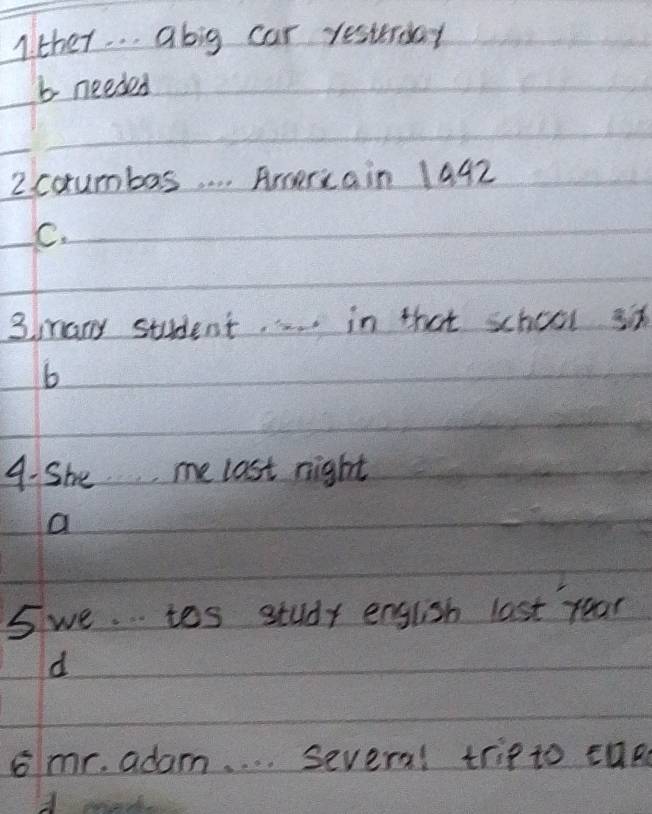 1. they... abig car yesterday
b needed
2 columbas .... America in 1992
C.
3. many student ..... in that school
b
4- She ..... me last night
a
5 we ... tos study english last year
d
6 mr. adam .... several trip to
d